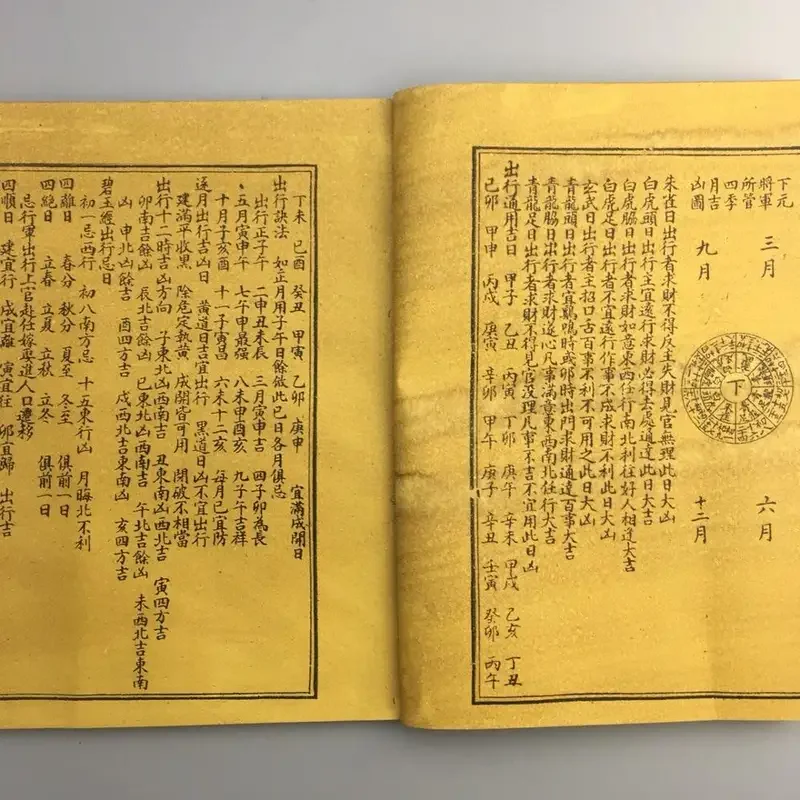 下元
將軍
所管
四季
月吉
凶圖
三月
六月
九月
十二月
下
朱雀日出行者求財不得反主失財見官無理此日大凶
白虎頭日出行主宜遠行求財必得去處通達此日大吉
白虎脇日出行者求財如意東西任行南北利往好人相逢大吉
白虎足日出行者不宜遠行作事不成求財不利此日大凶
玄武日出行者主招口舌百事不利不可用之此日大凶
青龍頭日出行者宜鷄鳴時或卯時出門求財通達百事大吉
青龍脇日出行者求財遂心凡事滿意東西南北任行大吉
青龍足日出行者求財不得見官没理凡事不吉不宜用此日凶
出行通用吉日 甲子 乙丑 丙寅 丁卯 庚午 辛未 甲戌 乙亥 丁丑
己卯 甲申 丙戌 庚寅 辛卯 甲午 庚子 辛丑 壬寅 癸卯 丙午
丁未 己酉 癸丑 甲寅 乙卯 庚申 宜滿成開日
出行訣法 如正月用子午日餘倣此已日各月俱忌
出行正子午 二申丑未辰 三月寅申吉 四子卯為長
五月寅申午 七午甲最强 八未甲酉亥 九子午吉祥
十月子亥酉 十一子寅昌 六未十二亥 每月已宜防
逐月出行吉凶日 黄道日吉宜出行 黑道日凶不宜出行
建滿平收黑 除危定執黄 成開皆可用 閉破不相當
出行十二時吉凶方向 子東北凶西南吉 丑東南凶西北吉 寅四方吉
卯南吉餘凶 辰北吉餘凶 巳東北凶西南吉 午北吉餘凶 未西北吉東南
凶 申北凶餘吉 酉四方吉 戌西北吉東南凶 亥四方吉
碧玉經出行忌日
初一忌西行 初八南方忌 十五東行凶 月晦北不利
四離日 春分 秋分 夏至 冬至 俱前一日
四絶日 立春 立夏 立秋 立冬 俱前一日
忌行軍出行上官赴任嫁娶進人口遷移
四順日 建宜行 成宜離 寅宜往 卯宜歸 出行吉